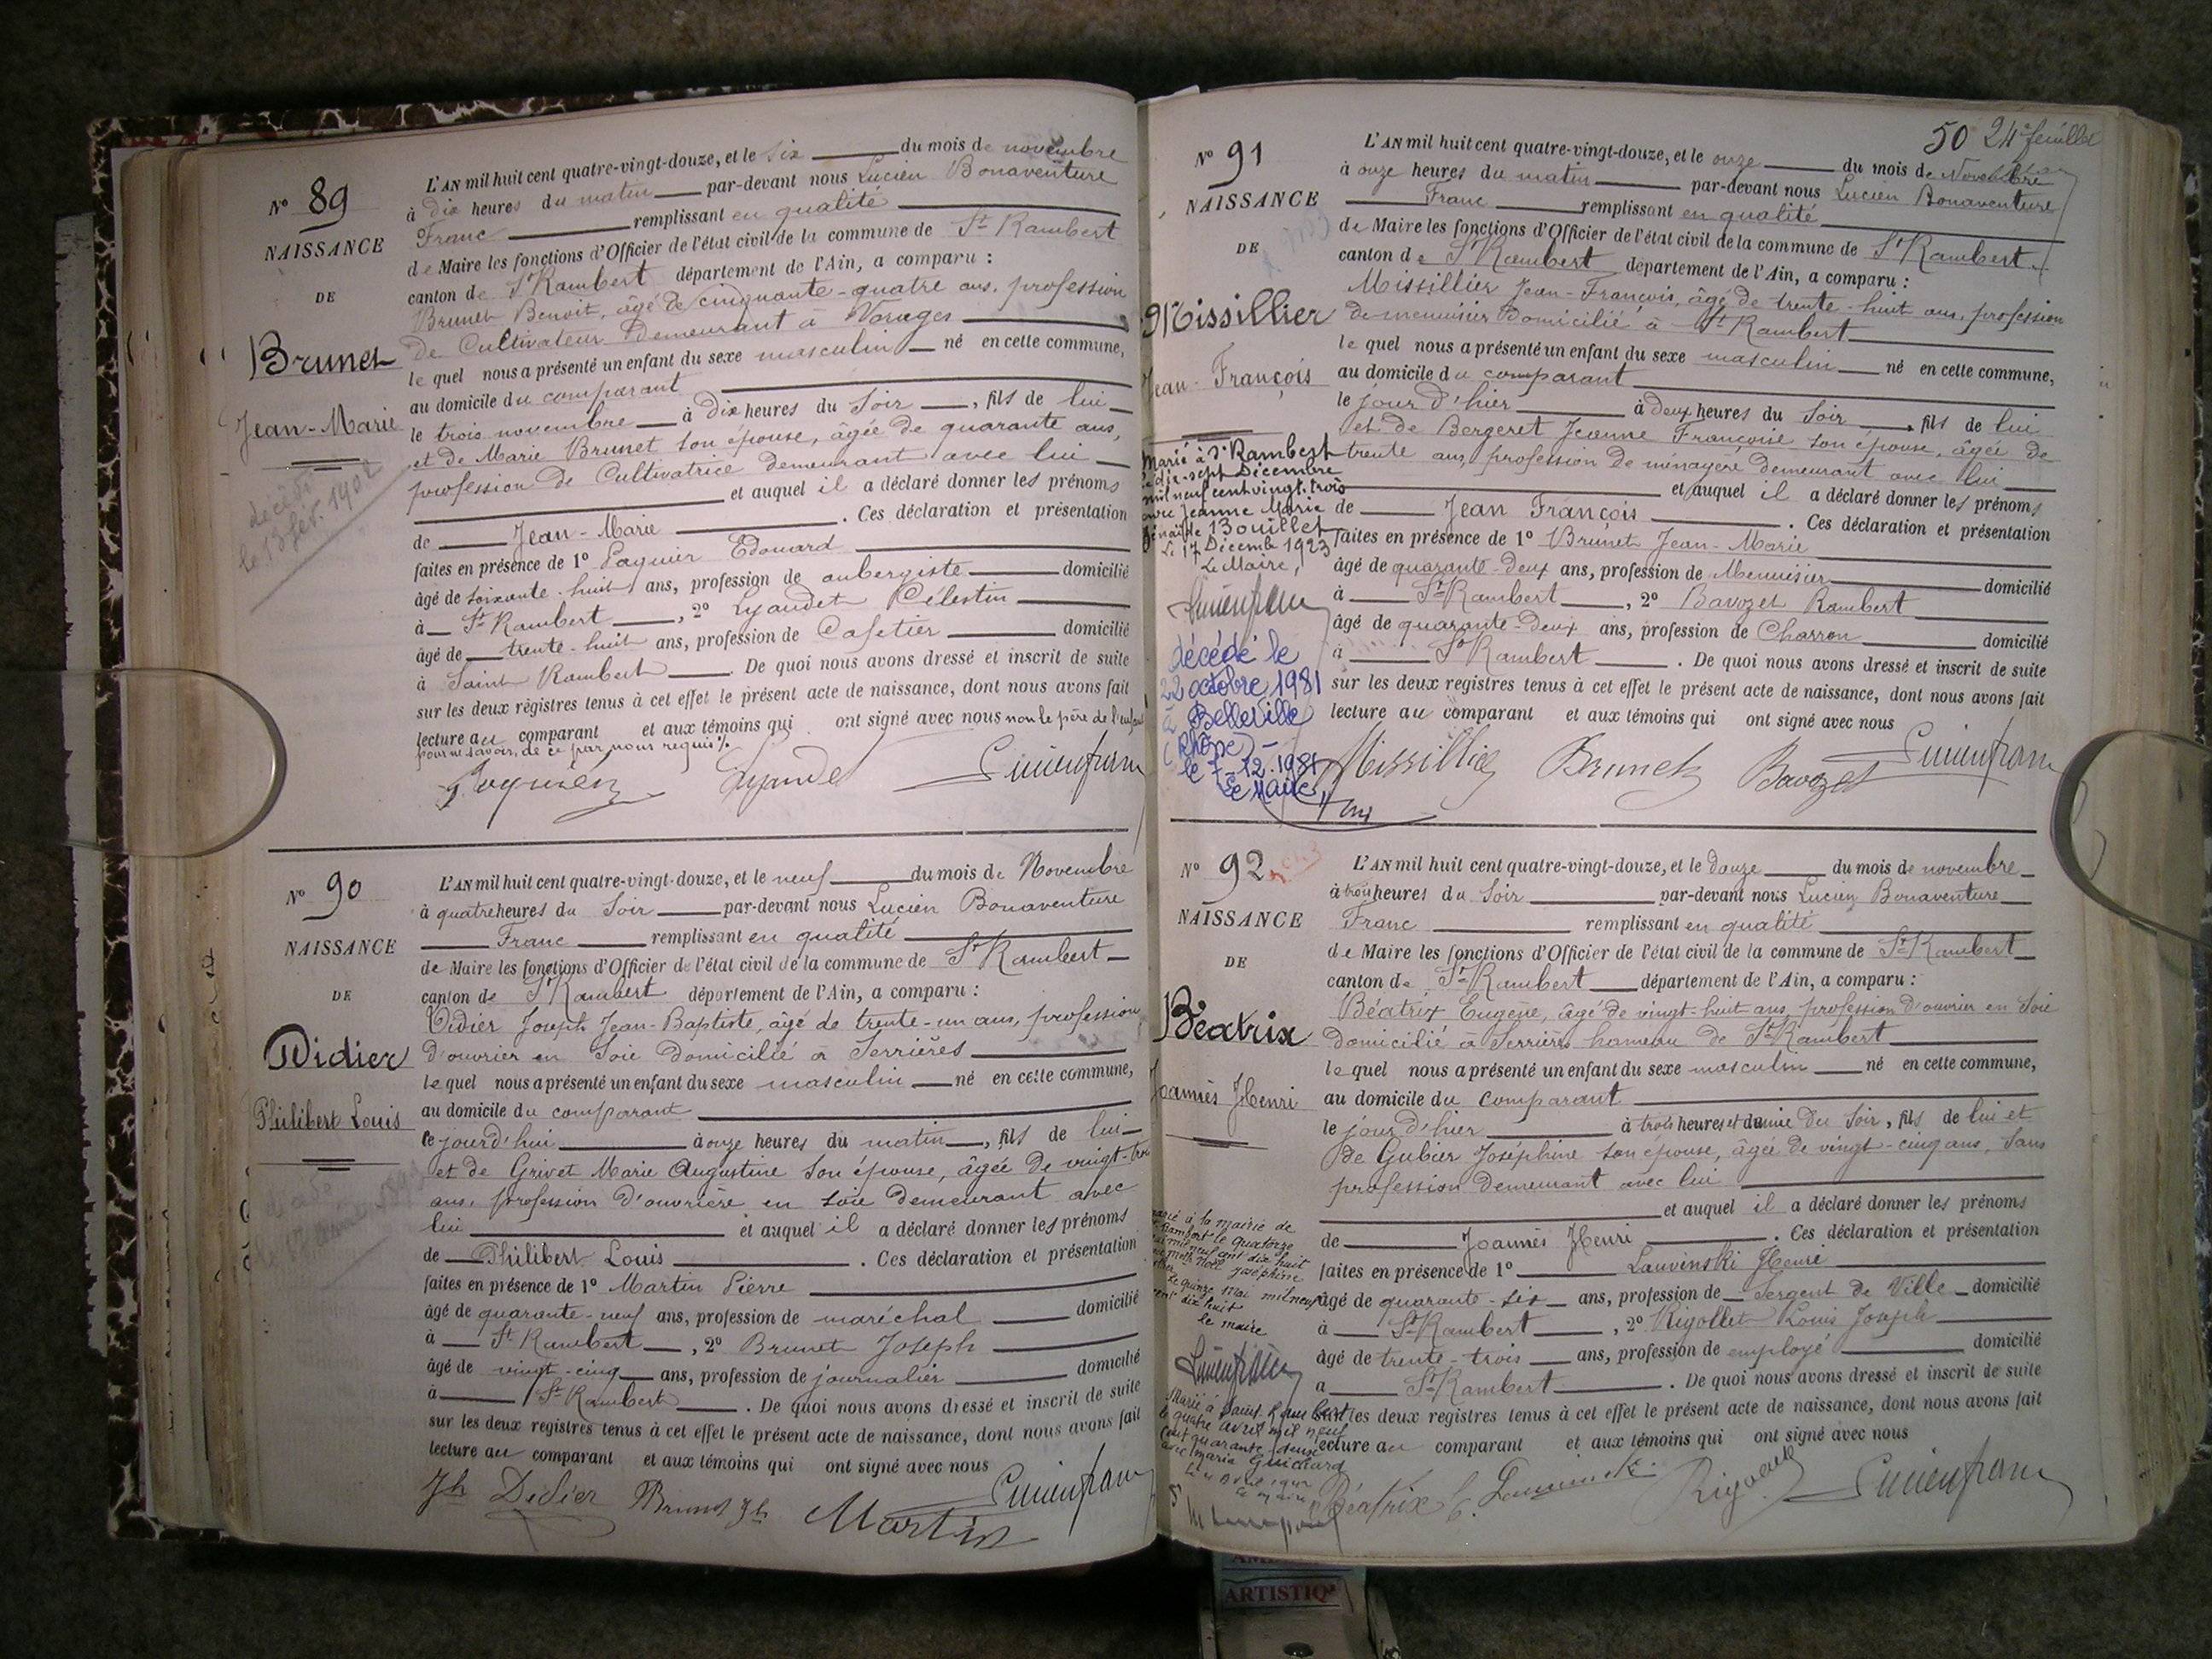 N° 89
NAISSANCE
DE
Brunet
Jean-Marie
décédé
le 13 fév. 1902
L'AN mil huit cent quatre-vingt-douze, et le six du mois de novembre
à dix heures du matin par-devant nous Lucien Bonaventure
Franc remplissant en qualité
de Maire les fonctions d'Officier de l'état civil de la commune de St Rambert
canton de St Rambert département de l'Ain, a comparu :
Brunet Benoit, âgé de cinquante-quatre ans, profession
de Cultivateur demeurant à Vorages
le quel nous a présenté un enfant du sexe masculin né en cette commune,
au domicile du comparant
le trois novembre à dix heures du soir, fils de lui
et de Marie Brunet son épouse, âgée de quarante ans,
profession de Cultivatrice demeurant avec lui
et auquel il a déclaré donner les prénoms
de Jean-Marie. Ces déclaration et présentation
faites en présence de 1° Paquier Edouard
âgé de soixante-huit ans, profession de aubergiste domicilié
à St Rambert, 2° Lyaudet Célestin
âgé de trente-huit ans, profession de Cafetier domicilié
à Saint Rambert. De quoi nous avons dressé et inscrit de suite
sur les deux régistres tenus à cet effet le présent acte de naissance, dont nous avons fait
lecture au comparant et aux témoins qui ont signé avec nous non le père de l'enfant
pour ne savoir, de ce par nous requis ./.
Lyaudet Lucien franc
N° 90
NAISSANCE
DE
Didier
Philibert Louis
L'AN mil huit cent quatre-vingt-douze, et le neuf du mois de Novembre
à quatre heures du soir par-devant nous Lucien Bonaventure
Franc remplissant en qualité
de Maire les fonctions d'Officier de l'état civil de la commune de St Rambert
canton de St Rambert département de l'Ain, a comparu :
Didier Joseph Jean-Baptiste, âgé de trente-un ans, profession
d'ouvrier en soie domicilié à Serrières
le quel nous a présenté un enfant du sexe masculin né en cette commune,
au domicile du comparant
ce jourd'hui à onze heures du matin, fils de lui
et de Grivet Marie Augustine son épouse, âgée de vingt-trois
ans, profession d'ouvrière en soie demeurant avec
lui et auquel il a déclaré donner les prénoms
de Philibert Louis. Ces déclaration et présentation
faites en présence de 1° Martin Pierre
âgé de quarante-neuf ans, profession de maréchal domicilié
à St Rambert, 2° Brunet Joseph
âgé de vingt-cinq ans, profession de journalier domicilié
à St Rambert. De quoi nous avons dressé et inscrit de suite
sur les deux registres tenus à cet effet le présent acte de naissance, dont nous avons fait
lecture au comparant et aux témoins qui ont signé avec nous
Jh Didier Brunet Jh Martin Lucien franc
50 24e feuillet
N° 91
NAISSANCE
DE
Missillier
Jean-François
Marié à St Rambert
le dix-sept Décembre
mil neuf cent vingt-trois
avec Jeanne Marie
Bouillet
Le 17 Décemb 1923
Le Maire,
Lucien franc
décédé le
22 octobre 1981
à Belleville
(Rhône) -
le 7-12-1981
Le Maire,
L'AN mil huit cent quatre-vingt-douze, et le onze du mois de Novembre
à onze heures du matin par-devant nous Lucien Bonaventure
Franc remplissant en qualité
de Maire les fonctions d'Officier de l'état civil de la commune de St Rambert
canton de St Rambert département de l'Ain, a comparu :
Missillier Jean-François, âgé de trente-huit ans, profession
de menuisier domicilié à St Rambert
le quel nous a présenté un enfant du sexe masculin né en cette commune,
au domicile du comparant
le jour d'hier à deux heures du soir, fils de lui
et de Bergeret Jeanne Françoise son épouse, âgée de
trente ans, profession de ménagère demeurant avec lui
et auquel il a déclaré donner les prénoms
de Jean François. Ces déclaration et présentation
faites en présence de 1° Brunet Jean-Marie
âgé de quarante-deux ans, profession de Menuisier domicilié
à St Rambert, 2° Bavozet Rambert
âgé de quarante-deux ans, profession de Charron domicilié
à St Rambert. De quoi nous avons dressé et inscrit de suite
sur les deux registres tenus à cet effet le présent acte de naissance, dont nous avons fait
lecture au comparant et aux témoins qui ont signé avec nous
Missillier Brunet Bavozet Lucien franc
N° 92
NAISSANCE
DE
Béatrix
Joannès Henri
Marié à la mairie de
St Rambert le quatorze
mai mil neuf cent dix huit
Joséphine
Le quinze Mai mil neuf
cent dix huit
le maire
Lucien franc
Marié à Saint-Rambert
le quatre avril mil neuf
cent quarante-deux
avec Maria Guichard
Le maire
L'AN mil huit cent quatre-vingt-douze, et le douze du mois de novembre
à trois heures du soir par-devant nous Lucien Bonaventure
Franc remplissant en qualité
de Maire les fonctions d'Officier de l'état civil de la commune de St Rambert
canton de St Rambert département de l'Ain, a comparu :
Béatrix Eugène, âgé de vingt-huit ans, profession d'ouvrier en soie
domicilié à Serrières hameau de St Rambert
le quel nous a présenté un enfant du sexe masculin né en cette commune,
au domicile du comparant
le jour d'hier à trois heures et demie du soir, fils de lui et
de Gubier Joséphine son épouse, âgée de vingt-cinq ans, sans
profession demeurant avec lui
et auquel il a déclaré donner les prénoms
de Joannès Henri. Ces déclaration et présentation
faites en présence de 1° Lauvinski Henri
âgé de quarante-six ans, profession de Sergent de Ville domicilié
à St Rambert, 2° Rigollet Louis Joseph
âgé de trente-trois ans, profession de employé domicilié
a St Rambert. De quoi nous avons dressé et inscrit de suite
sur les deux registres tenus à cet effet le présent acte de naissance, dont nous avons fait
lecture au comparant et aux témoins qui ont signé avec nous
Béatrix E. Lucien franc
ARTISTIQ